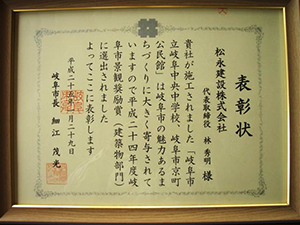 表彰状
松永建設株式会社
代表取締役 林 秀明 様
貴社が施工されました「岐阜市
立岐阜中央中学校、岐阜市京町
公民館」は岐阜市の魅力あるま
ちづくりに大きく寄与されて
いますので平成二十四年度岐
阜市景観奨励賞(建築物部門)
に選出されました
よってここに表彰します
平成二十五年 月二十九日
岐阜市長 細江 茂光